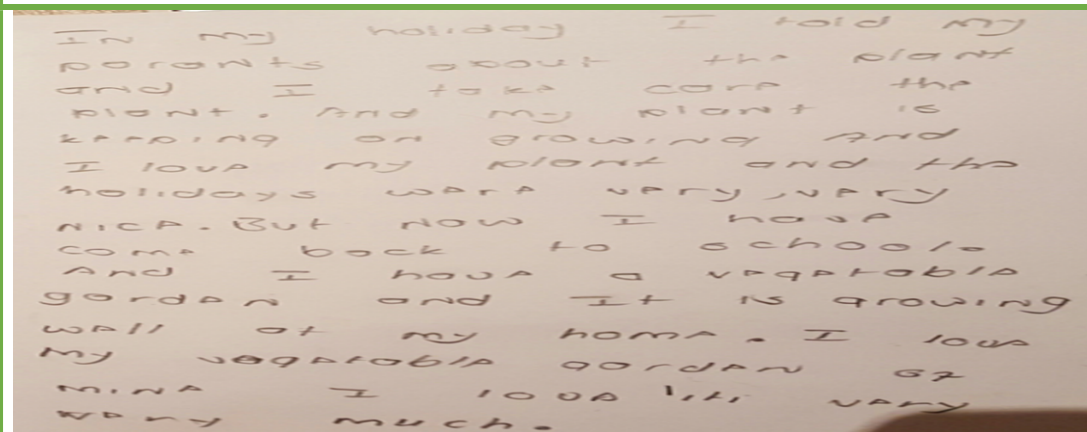 In my holiday I told my
parants about the plant
and I take care the
plant. And my plant is
keeping on growing And
I love my plant and the
holidays were very, very
nice. But now I have
come back to school.
And I have a vegetable
garden and It is growing
well at my home. I love
my vegetable garden of
mine I love it, very
very much.